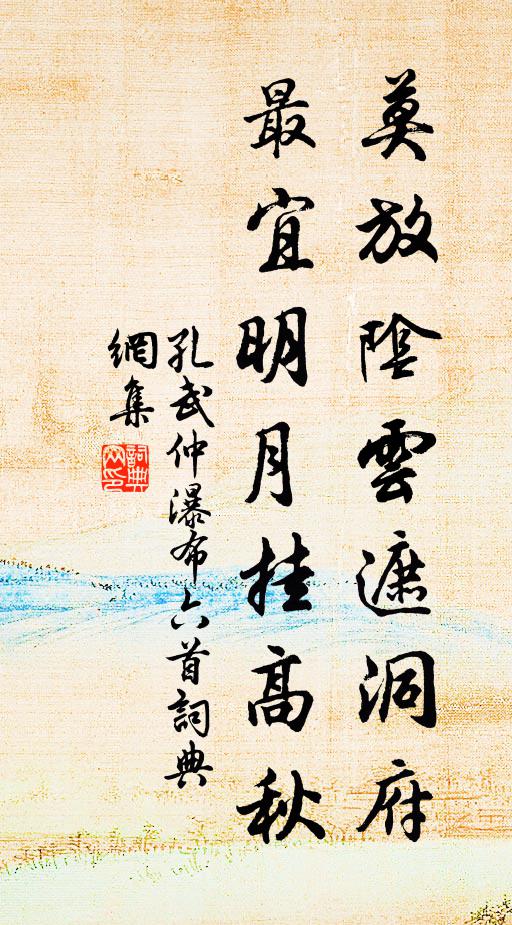 莫放陰雲遮洞府
最宜明月挂高秋
孔武仲瀑布六首詞典
網集
詞典網印